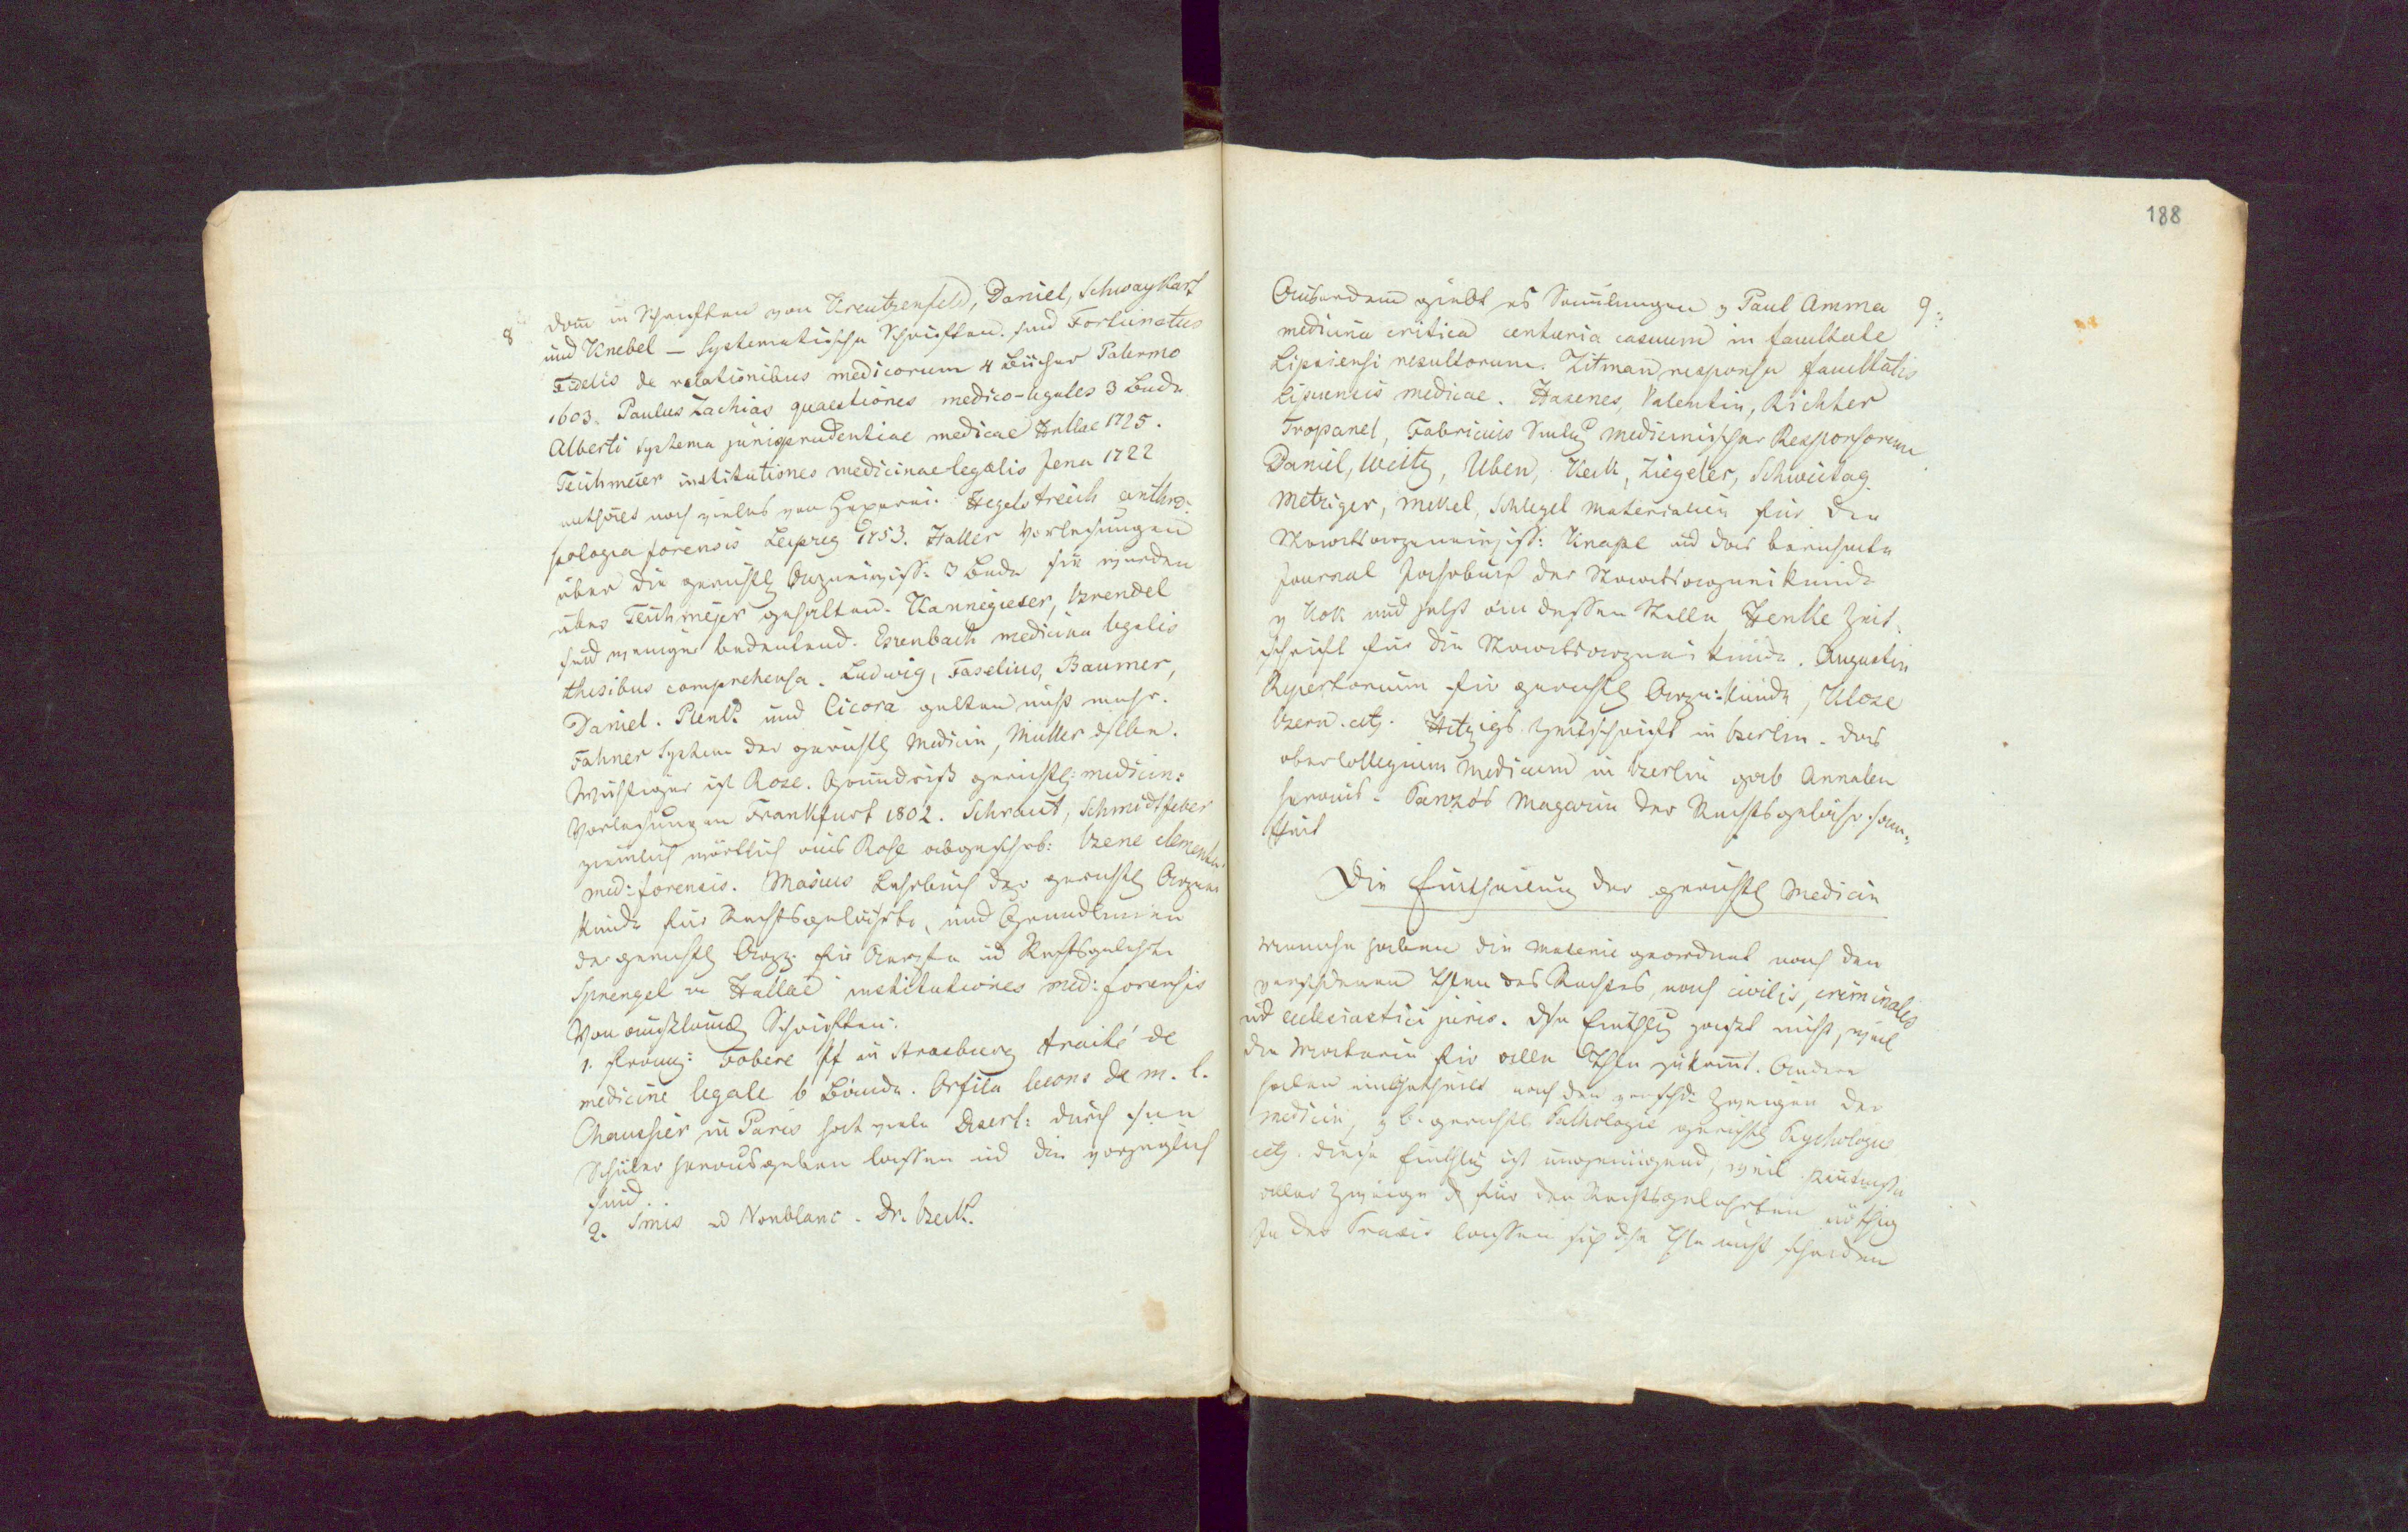 8
dann in Schriften von Kreutzenfeld, Daniel, Schwaykart
und Knebel – Systematische Schriften sind Fortunatus
Fidelis de relationibus medicorum 4 Bücher Palermo
1603. Paulus Zachias quaestiones medico-legales 3 Bnde
Alberti Systema jurisprudentiae medicae Hallae 1725.
Teichmeier institutiones medicinae legalis Jena 1722
enthält noch vieles von Hexerei. Hegelstreich anthro-
pologia forensis Leipzig 1753. Haller Vorlesungen
über die gerichtl Arzneiwiss: 3 Bnde sie wurden
über Teichmejer gehalten. Kannegieser, Brendel
sind weniger bedeutend. Esenbach medicina legalis
thesibus comprehensa. Ludwig, Faselius, Baumer,
Daniel. Plenk und Cicora gelten nicht mehr.
Fahner System der gerichtl Medicin, Müller
Wichtiger ist Rose. Grundriß gerichtl: medicin:
Vorlesungen Frankfurt 1802. Schraut, Schmidtfeber
ziemlich wörtlich aus Rose abgeschrb: Bene elementa
med: forensis. Masius Lehrbuch der gerichtl Arznei
kunde für Rechtsgelehrte, und Grundlinien
der gerichtl Arzz. für Aerzte ud Rechtsgelehrte
Sprengel in Hallae institutiones med: forensis
Von ausländ Schriften:
1. franz: Fobere Pf in Strasburg traité de
medicine legale 6 Bände. Orfila lecons de m. l.
Chaussier in Paris hat viele Disert: durch seine
Schüler herausgeben lassen ud die vorzüglich
sind.
2. Smis ud Nonblanc. Dr. Beck.
188
9:
Ausserdem giebt es Samlungen v Paul Amma
medicina critica centuria casuum in facultate
Lipsiensi resultorum. Zitman responsa facultatis
lipsiensis medicae. Hasenes, Valentin, Richter
Tropanel, Fabricius Smlug medicinischer Responsorum
Daniel, Weitz, Uben, Keck, Ziegeler, Schweitag
Metziger, Mekel, Schlegel Materialien für die
Staatsarzneiwiss: Knape ud das berühmte
Journal Jahrbuch der Staatsarzneikunde
v Kok und jetzt an dessen Stelle Henke Zeit-
schrift für die Staatsarzneikunde. Augustin
Repertorium für gerichtl Arzn:kunde, Klose
Bern. etz. Hitzigs Zeitschrift in Berlin. das
obercollegium medicum in Berlin gab Annalen
heraus. Magazin der Rechtsgelehrsam-
keit
Die Eintheilung der gerichtl Medicin
Manche haben die Materie geordnet nach den
verschiedenen Thlen des Rechtes, nach civilis, criminalis
ud eclesiastici juris. Eintheilg nicht, weil
die Materie für alle Thle zukomt. Andere
haben eingetheilt nach den verschd: Zweigen der
Medicin, z b. gerichtl Pathologie gerichtl Psychologie
etz. diese Einthlg ist ungenügend, weil Kentnisse
aller Zweige d für den Rechtsgelehrten nöthig
In der Praxis lassen sich Thle nicht scheiden